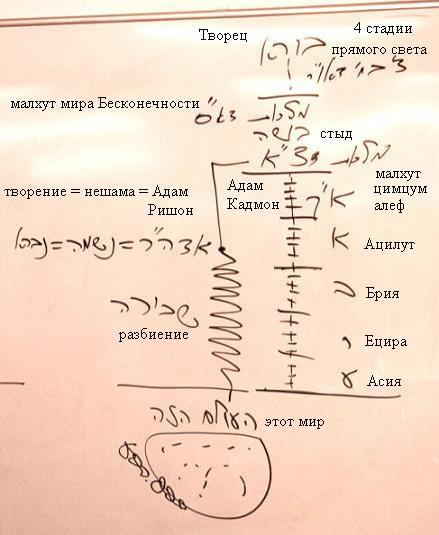 Творец בורא 4 стадии
прямого света
ד' בח' דאו"י
малхут мира Бесконечности מלכות דא"ס
בושה стыд
מלכות דצ"א малхут
цимцум
алеф
творение = нешама = Адам
Ришон
Адам
Кадмон
א"ק
א Ацилут
אדה"ר = נשמה = נברא
ב Брия
שבירה
разбиение
י Ецира
ע Асия
העולם הזה этот мир